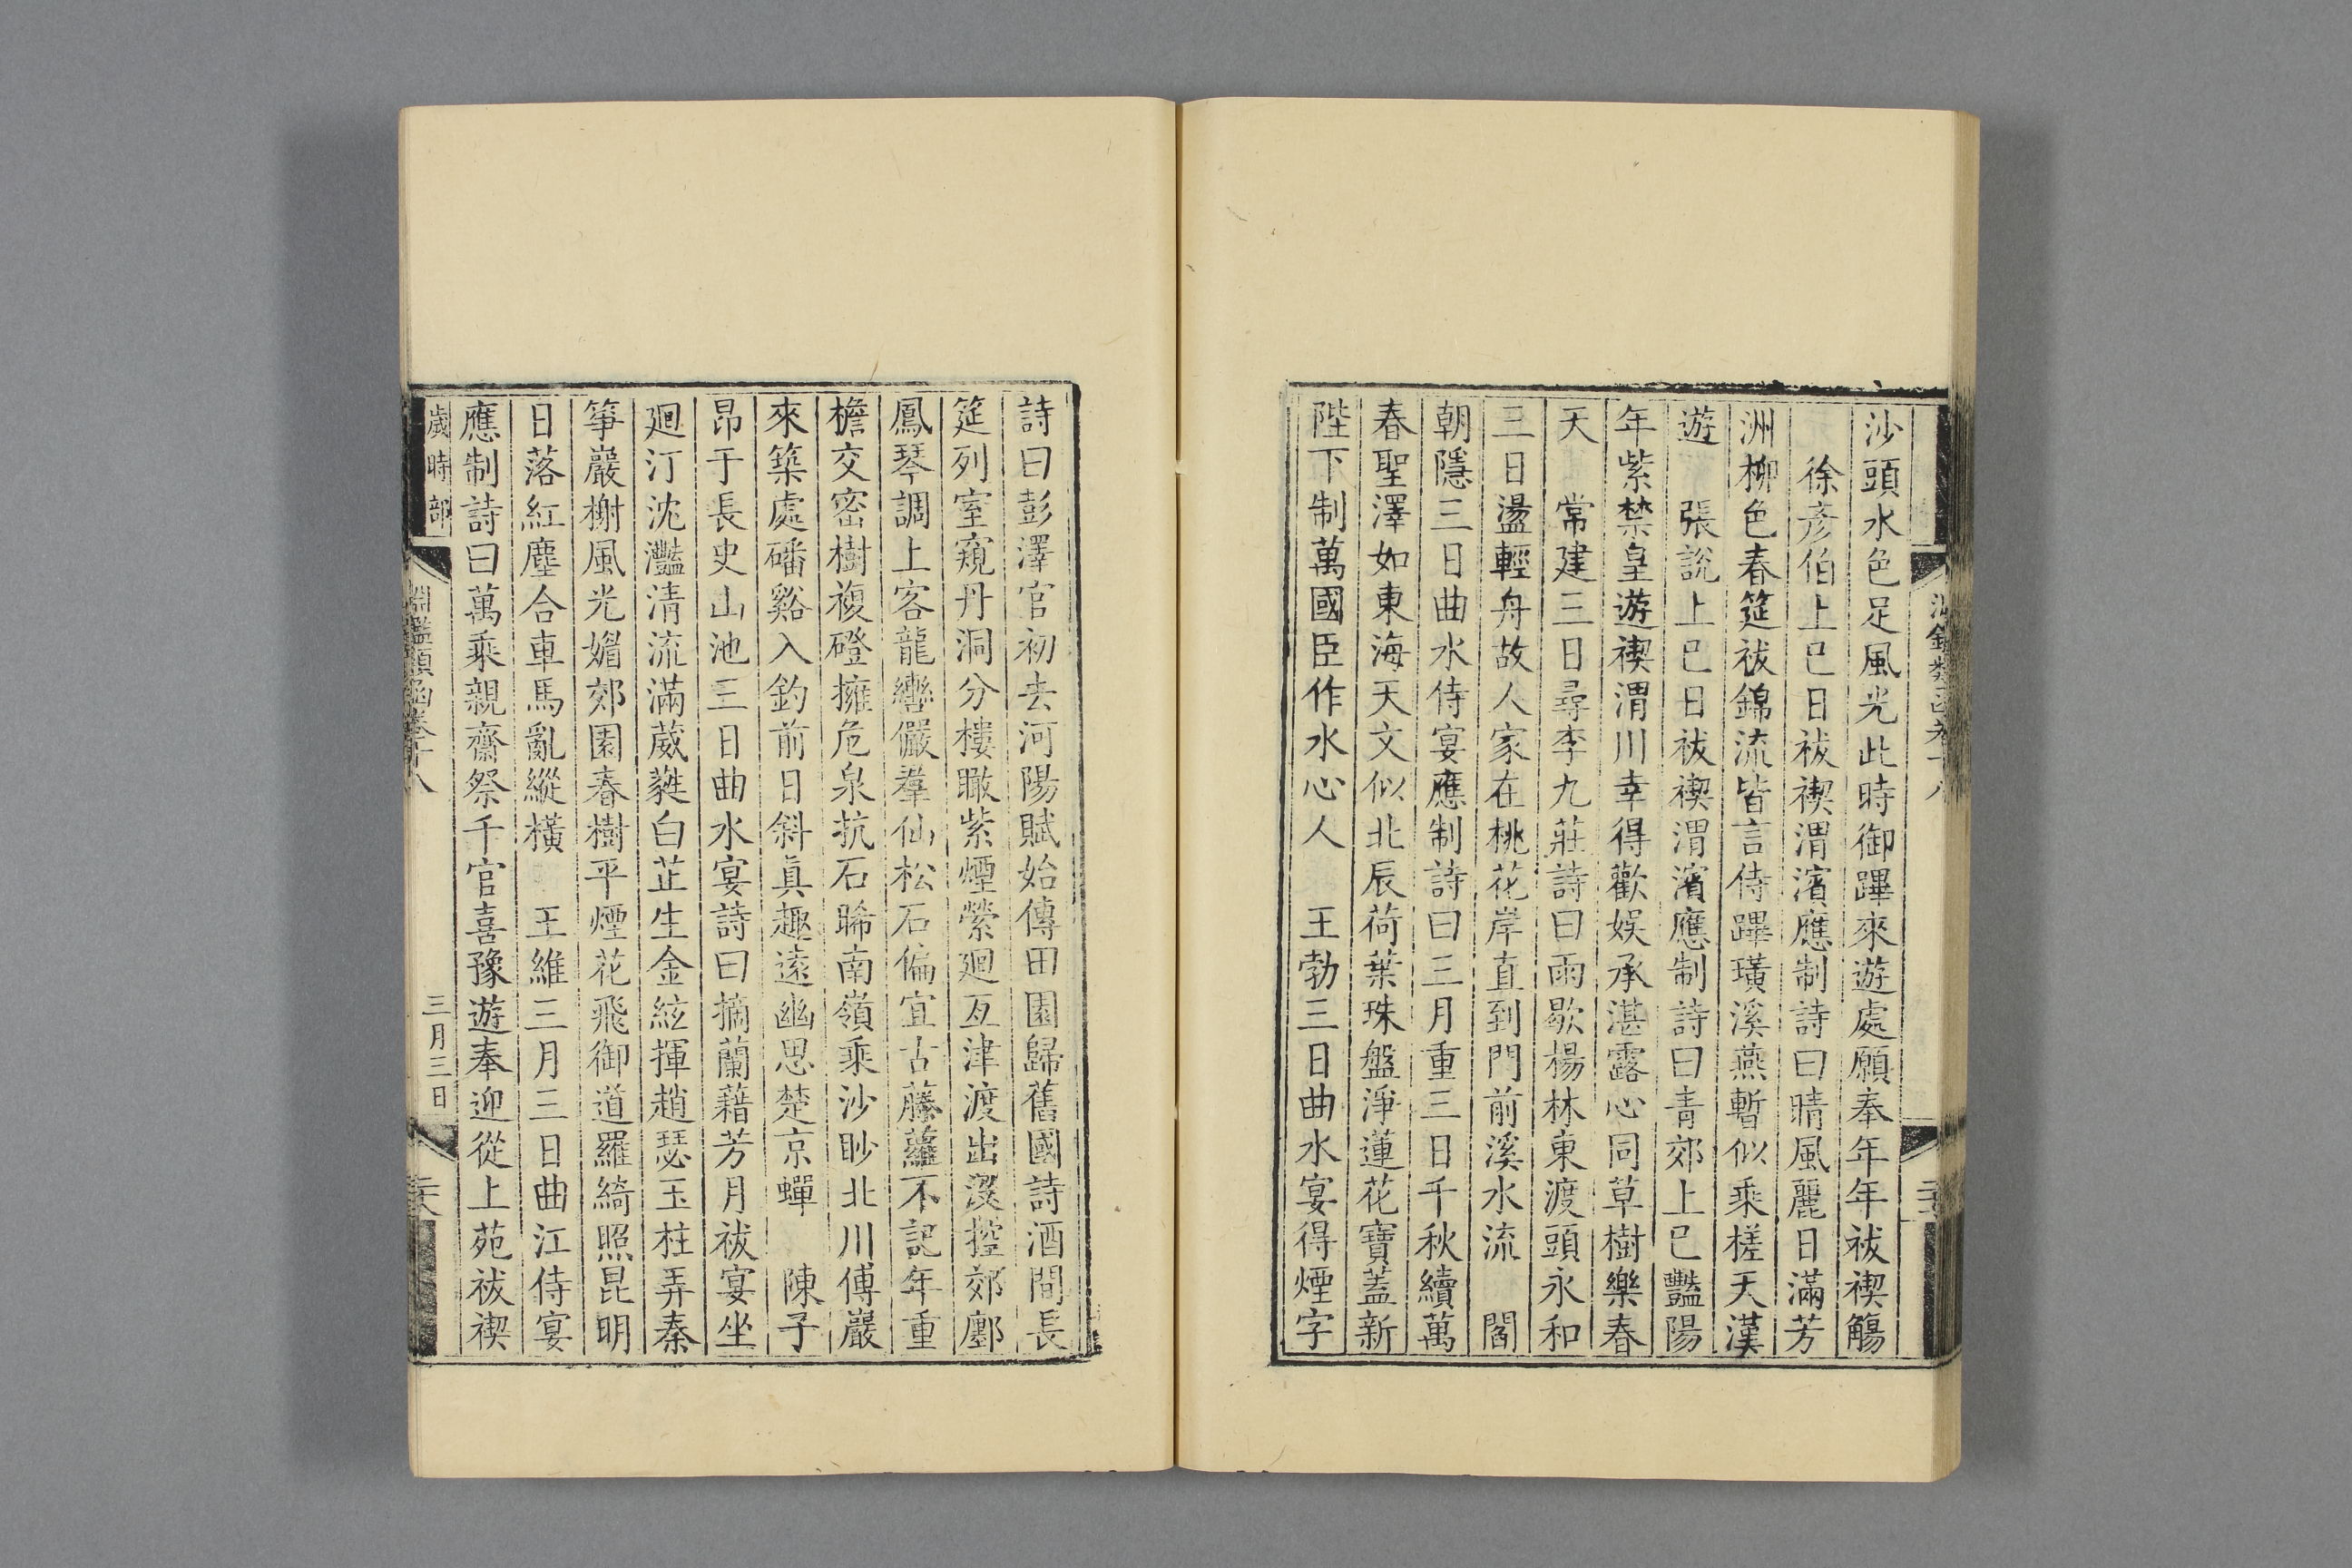 沙頭水色足風光此時御蹕來遊處願奉年年祓禊觴
徐彥伯上巳日祓禊渭濱應制詩曰晴風麗日滿芳
洲柳色春筵祓錦流皆言侍蹕璜溪燕暫似乘槎天漢
遊　張說上巳日祓禊渭濱應制詩曰青郊上巳豔陽
年紫禁皇遊禊渭川幸得歡娛承湛露心同草樹樂春
天　常建三日尋李九莊詩曰雨歇楊林東渡頭永和
三日盪輕舟故人家在桃花岸直到門前溪水流　閻
朝隱三日曲水侍宴應制詩曰三月重三日千秋續萬
春聖澤如東海天文似北辰荷葉珠盤淨蓮花寶蓋新
陛下制萬國臣作水心人　王勃三日曲水宴得煙字
詩曰彭澤官初去河陽賦始傳田園歸舊國詩酒間長
筵列室窺丹洞分樓瞰紫煙縈廻亙津渡出沒控郊鄽
鳳琴調上客龍轡儼羣仙松石偏宜古藤蘿不記年重
檐交密樹複磴擁危泉抗石晞南嶺乘沙眇北川傅巖
來築處磻谿入釣前日斜眞趣遠幽思楚京蟬　陳子
昂于長史山池三日曲水宴詩曰摘蘭藉芳月祓宴坐
廻汀沈灩清流滿葳蕤白芷生金絃揮趙瑟玉柱弄秦
箏巖榭風光媚郊園春樹平煙花飛御道羅綺照昆明
日落紅塵合車馬亂縱橫　王維三月三日曲江侍宴
應制詩曰萬乘親齋祭千官喜豫遊奉迎從上苑祓禊
歲時部
淵鑑類函卷十八
三月三日